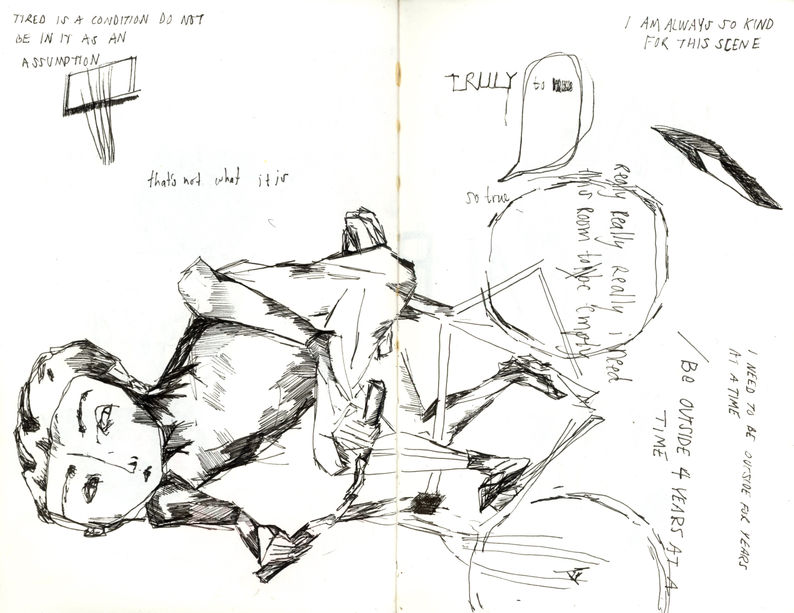 TIRED IS A CONDITION DO NOT
BE IN IT AS AN
ASSUMPTION
that's not what it is
I AM ALWAYS SO KIND
FOR THIS SCENE
TRULY to
so true
Really Really Really i need
this room to be empty
I NEED TO BE OUTSIDE FOR YEARS
AT A TIME
/BE OUTSIDE 4 YEARS AT A
TIME